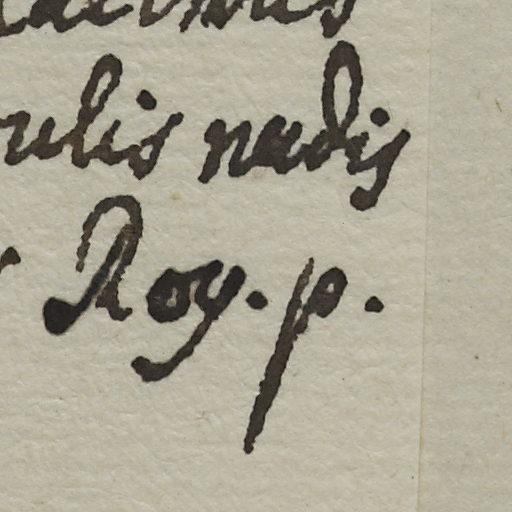 ulis nudis
Roy. p.